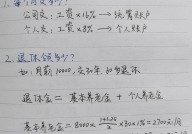 1. 单月交多少？
公司交：工资×16% → 统筹账户
个人交：工资×8% → 个人账户
2. 退休领多少？
如：月薪10000，交30年，
退休金 = 基本养老金 + 个人养老金
基本养老金 = 8000 × (1+1.25)/2 × 30 × 1% = 2700元/月